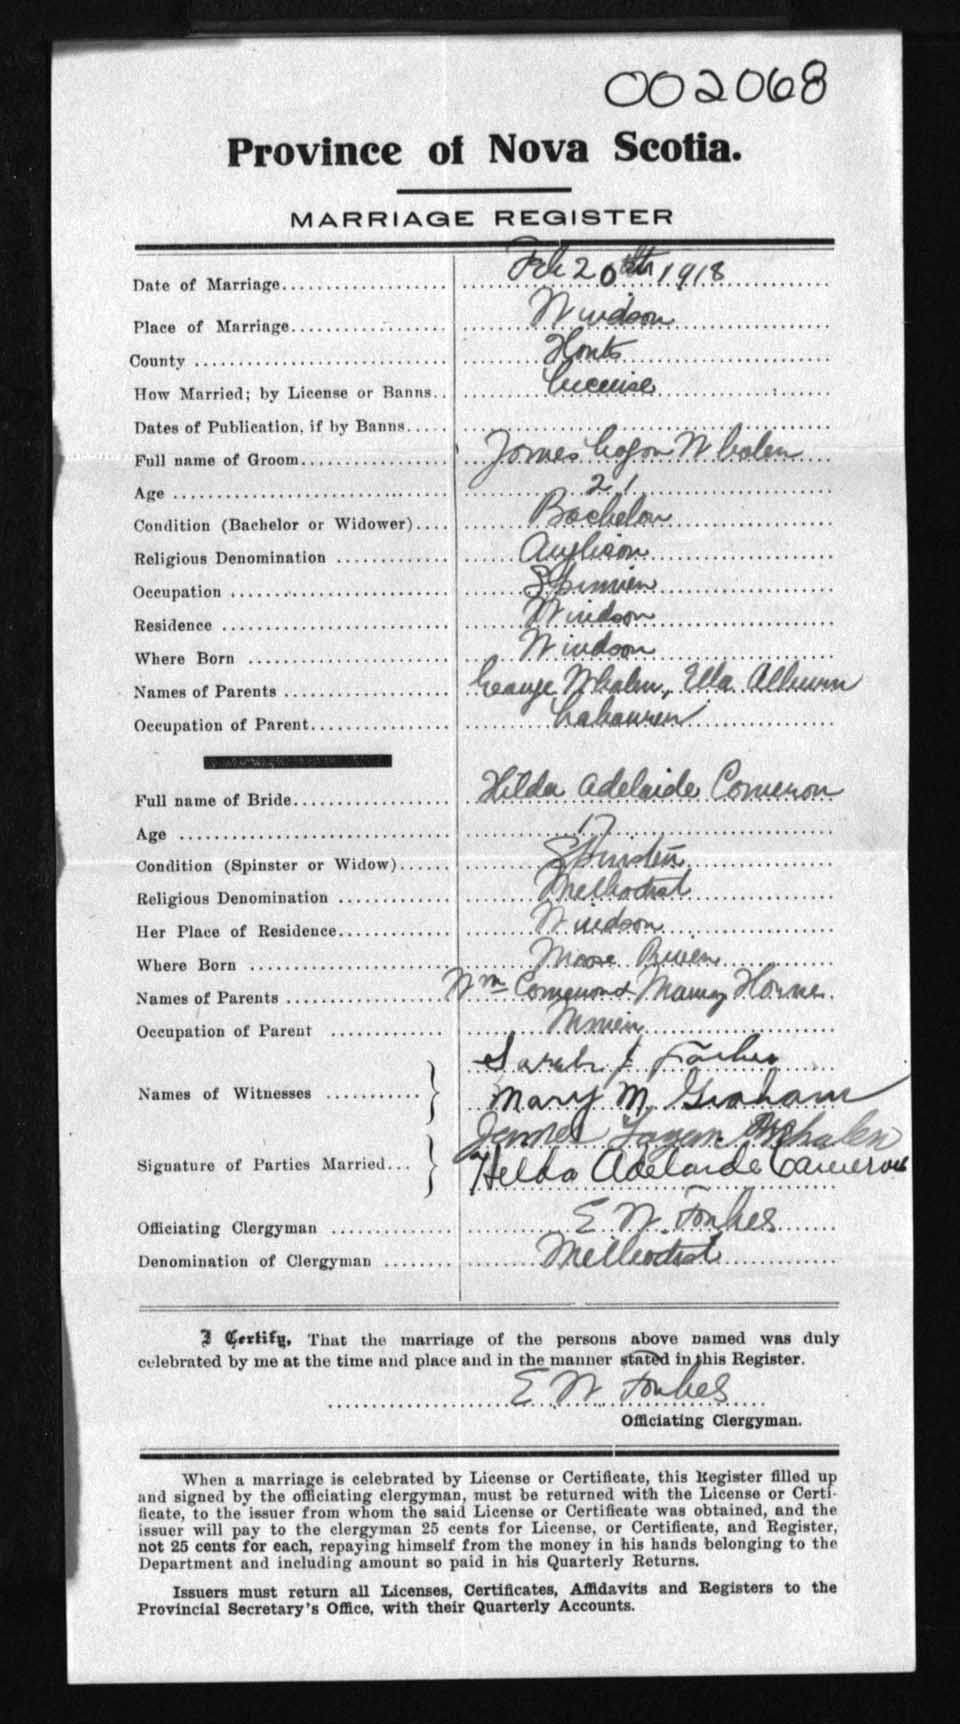 002068
Province of Nova Scotia.
MARRIAGE REGISTER
Date of Marriage Feb 20th 1918
Place of Marriage Windsor
County Hants
How Married; by License or Banns License
Dates of Publication, if by Banns
Full name of Groom James Logan Whalen
Age 21
Condition (Bachelor or Widower) Bachelor
Religious Denomination Anglican
Occupation
Residence Windsor
Where Born Windsor
Names of Parents George Whalen, Ella
Occupation of Parent
Full name of Bride Hilda Adelaide Cameron
Age 17
Condition (Spinster or Widow) Spinster
Religious Denomination Methodist
Her Place of Residence Windsor
Where Born Moose River
Names of Parents Wm Cameron &
Occupation of Parent Miner
Sarah J
Names of Witnesses
Mary M. Graham
James Logan Whalen
Signature of Parties Married
Hilda Adelaide Cameron
Officiating Clergyman E W. Forbes
Denomination of Clergyman Methodist
I Certify, That the marriage of the persons above named was duly
celebrated by me at the time and place and in the manner stated in this Register.
E W Forbes
Officiating Clergyman.
When a marriage is celebrated by License or Certificate, this Register filled up
and signed by the officiating clergyman, must be returned with the License or Certi-
ficate, to the issuer from whom the said License or Certificate was obtained, and the
issuer will pay to the clergyman 25 cents for License, or Certificate, and Register,
not 25 cents for each, repaying himself from the money in his hands belonging to the
Department and including amount so paid in his Quarterly Returns.
Issuers must return all Licenses, Certificates, Affidavits and Registers to the
Provincial Secretary's Office, with their Quarterly Accounts.